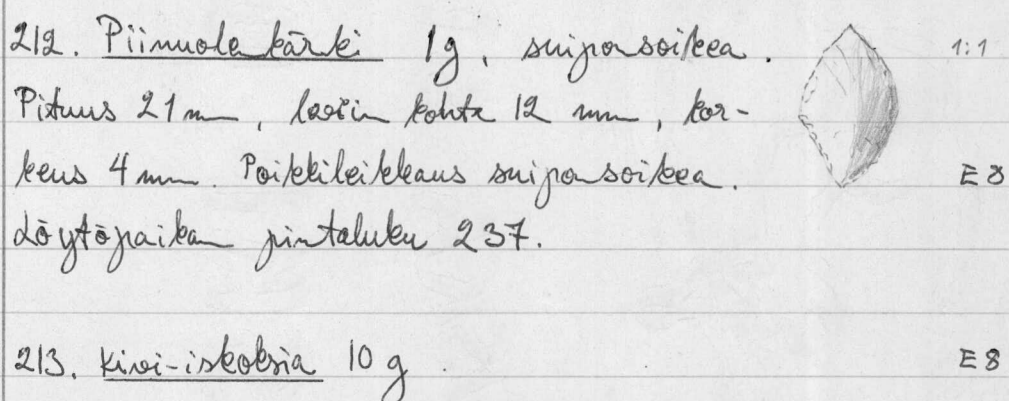 212. Piinuolenkärki 1g, suiponsoikea. 1:1
Pituus 21 mm, levein kohta 12 mm, kor-
keus 4 mm. Poikkileikkaus suiponsoikea. E8
Löytöpaikan pintaluku 237.
213. Kivi-iskoksia 10 g E8